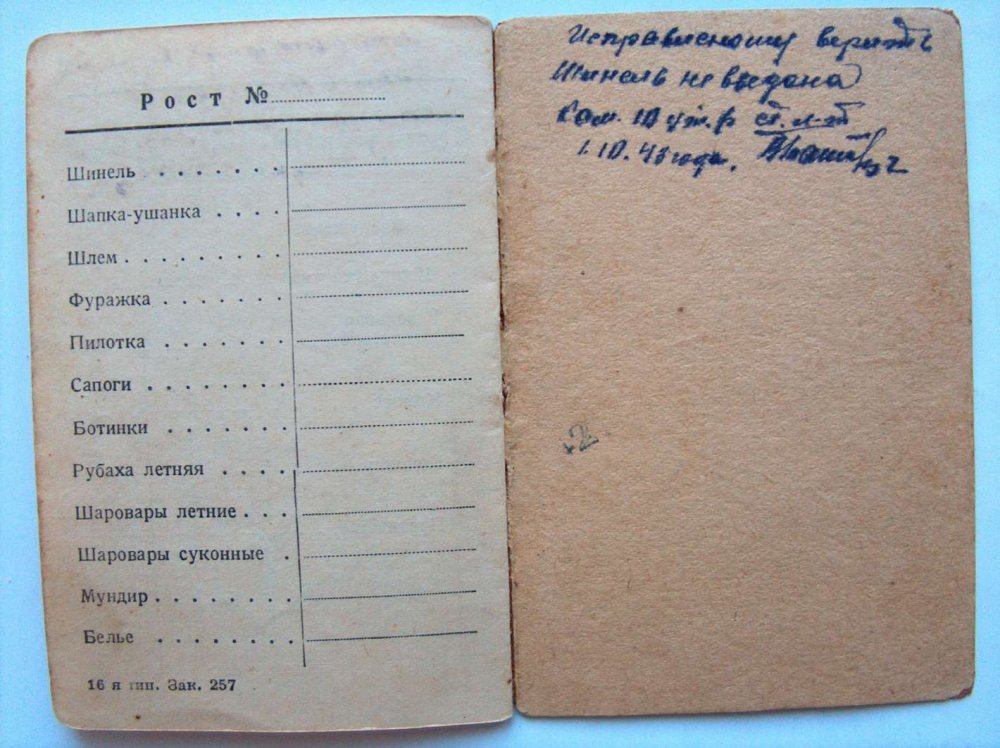 Рост №
Шинель
Шапка-ушанка
Шлем
Фуражка
Пилотка
Сапоги
Ботинки
Рубаха летняя
Шаровары летние
Шаровары суконные
Мундир
Белье
16 я тип. Зак. 257
Исправленному верить
Шинель не выдана
Ком. 10 ст. л-т
1.10.45 года.